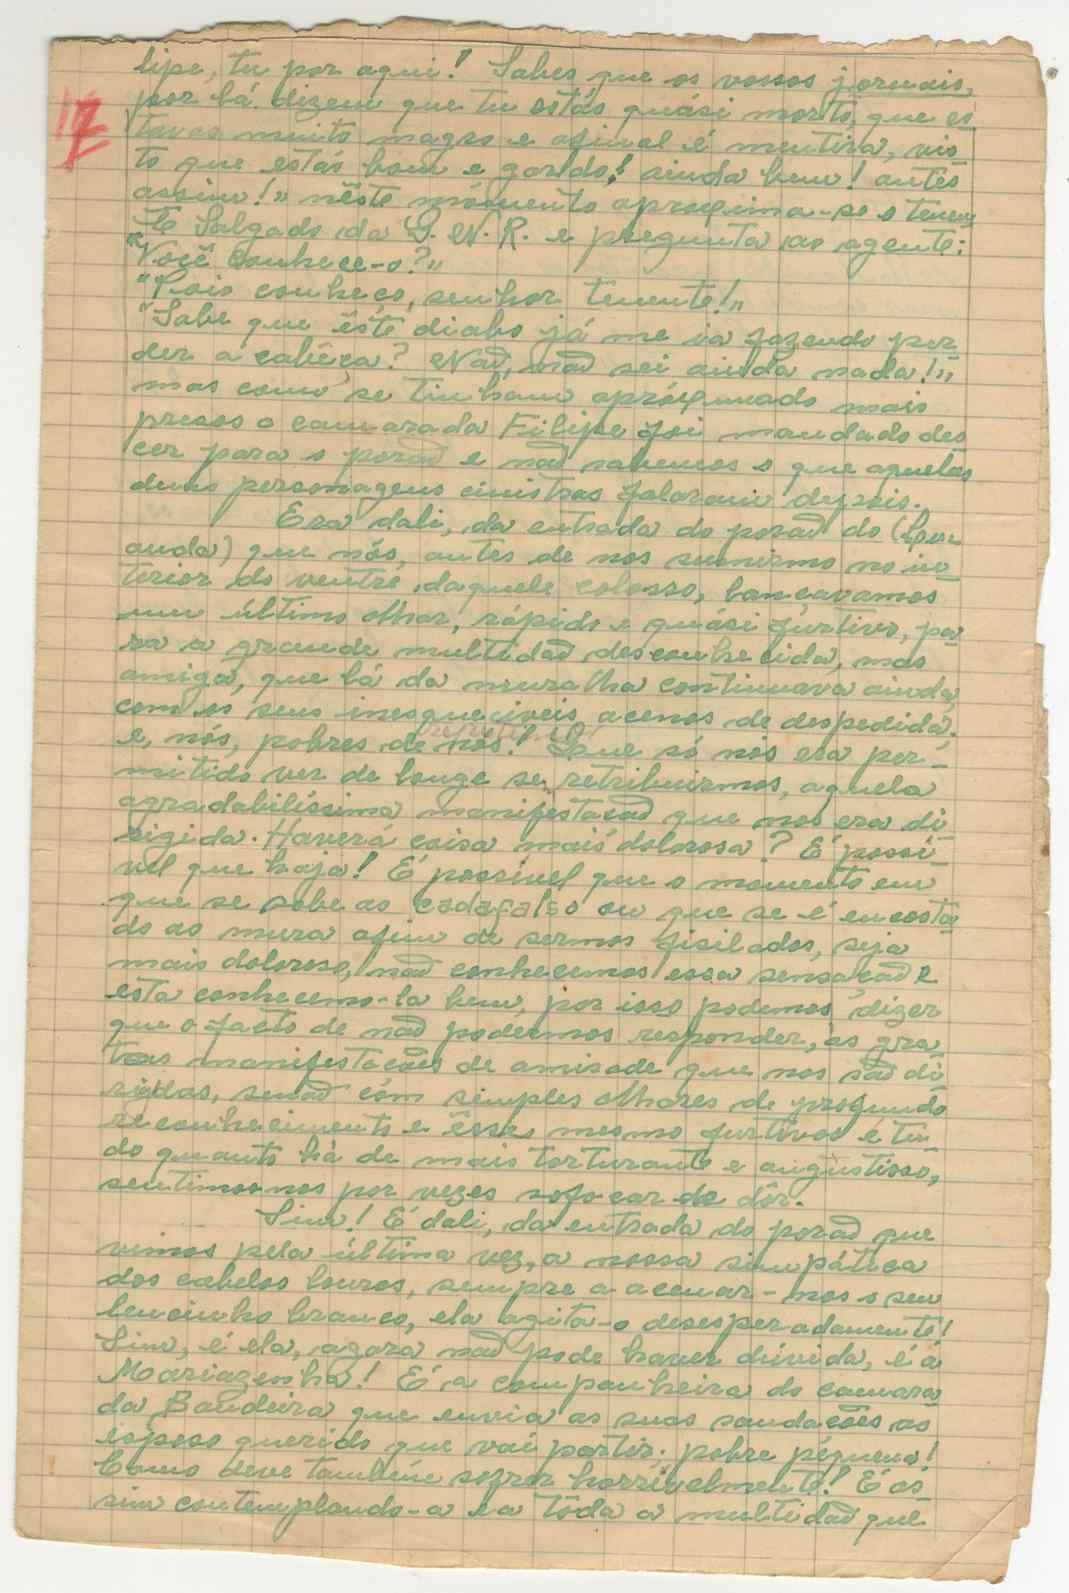 17
lipe, tu por aqui! Sabes que os vossos jornais,
por lá dizem que tu estás quási morto, que es-
tavas muito magro e afinal é mentira, vis-
to que estás bom e gordo! ainda bem! antes
assim!» nêste mómento aproxima-se o tenen-
te Salgado da G. N. R. e pregunta ao agente:
"Você conhece-o?"
"Pois conheço, senhor tenente!"
"Sabe que êste diabo já me ia fazendo per-
der a cabêça? Não, não sei ainda nada!"
mas como se tinham apróximado mais
presos o camarada Filipe foi mandado des
cer para o porão e não sabemos o que aquelas
duas personagens sinistras falaram depois.
Era dali, da entrada do porão do (Lou-
anda) que nós, antes de nos sumirmo no in-
terior do ventre daquele colosso, lançavamos
um último olhar, rápido e quási furtivo, pa
ra a grande multidão desconhecida, mas
amiga, que lá da muralha continuava ainda
com os seus inesqueciveis acenos de despedida,
e, nós, pobres de nós! Que só nos era per-
mitido ver de longe se, retribuirmos, aquela
agradabilíssima manifestacão que nos era di-
rigida. Haverá coisa mais dolorosa? É possi-
vel que haja! É possivel que o momento em
que se sobe ao cadafalso ou que se é encosta
do ao mura afim de sermos fisilados, seja
mais doloroso, não conhecemos essa sensacão e
esta conhecemo-la bem, por isso podemos dizer
que o facto de não podermos responder, ás gra
tas manifestacões de amisade que nos são di
rigidas, senão cóm simples olhares de profundo
reconhecimento e êsses mesmo furtivos é tu
do quanto há de mais torturante e angustioso,
sentimo-nos por vezes sofocar de dôr.
Sim! É dali, da entrada do porão que
vimos pela última vez, a nossa simpática
dos cabelos louros, sempre a acenar-nos o seu
lencinho branco, ela agita-o desesperadamente!
Sim, é ela, agora não pode haver dúvida, é a
Mariazinha! É a companheira do camara
da Bandeira que envia as suas saudacões ao
esposo querido que vai partir; pobre péquena!
Como deve tambêm sofrer horrivelmente! É as-
sim contemplando-a e a tôda a multidão que